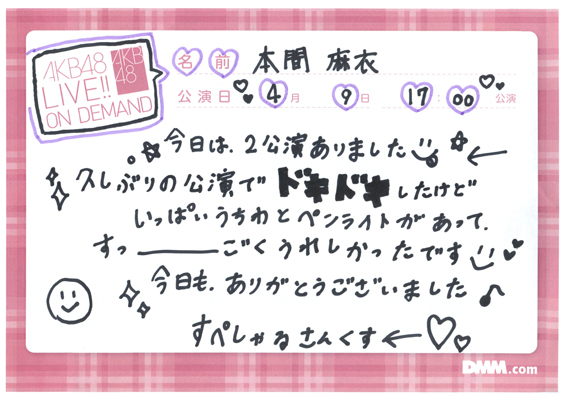 AKB48
LIVE!!
ON DEMAND
AKB
48
名前 本間 麻衣
公演日 4月 9日 17:00 公演
今日は、2公演ありました
久しぶりの公演でドキドキしたけど
いっぱいうちわとペンライトがあって、
すっ———ごくうれしかったです
今日も、ありがとうございました♪
すぺしゃるさんくす←♡
DMM.com